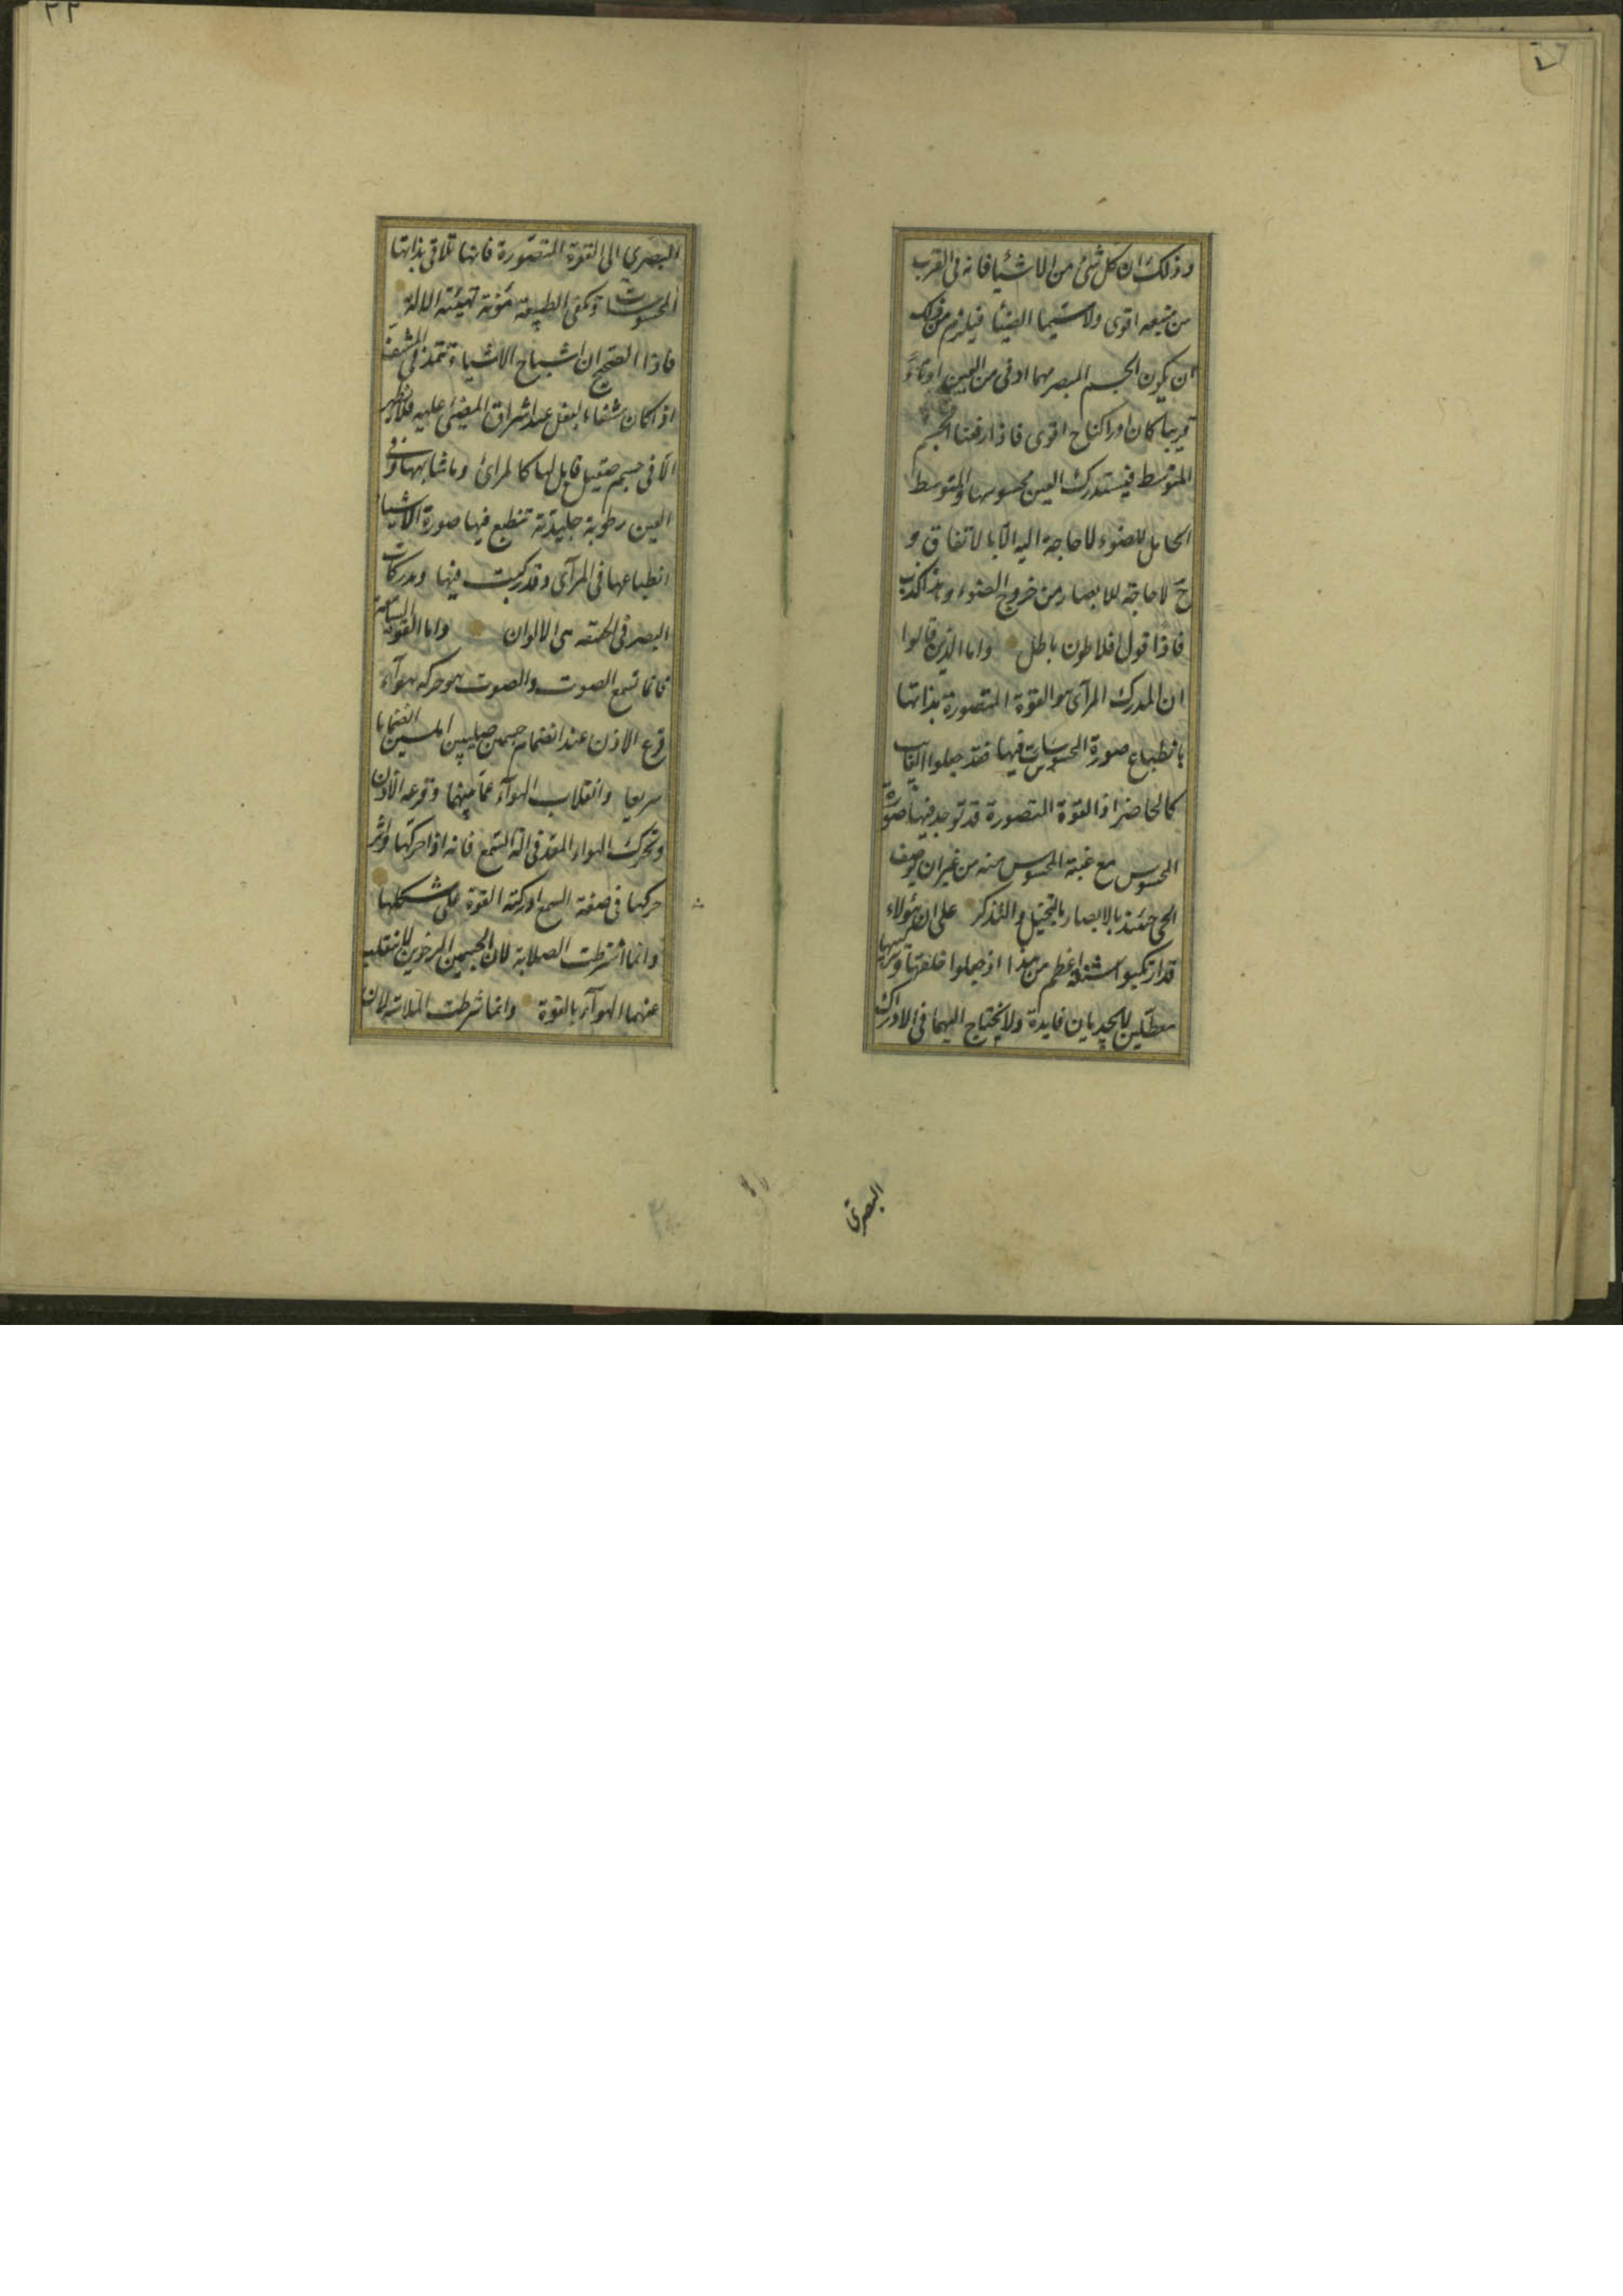 وذلك ان كل شئ من الاشيا فانه فى القرب
من منبعه اقوى ولا سيما الضيا فيلزم من ذلك
ان يكون الجسم المبصر مهما ادنى من العين
قريبا كان ادراكنا اقوى فاذا رفعنا الجسم
المتوسط فيستدرك العين محسوسها والمتوسط
الحامل للضوء لا حاجة اليه الا بالاتفاق و
ح لا حاجة للابصار من خروج الضوء وهذا كذب
فاذا قول افلاطون باطل واما الذين قالوا
ان المدرك المرآى هو القوة المتصورة بذاتها
بانطباع صورة المحسوسات فيها فقد جعلوا الغايب
كالحاضر اذ القوة المتصورة قد توجد فيها صورة
المحسوس مع غيبة المحسوس عنه من غير ان يوصف
الحى حينئذ بالابصار بل بالتخيل والتذكر على ان هؤلاء
قد ارتكبوا اعظم من هذا اذ جعلوا خلقتها
معطلين لا يجديان فايدة ولا يحتاج اليهما فى الادراك
البصرى
٢٢
البصرى الى القوة المتصورة فانها تلاقى بذاتها
المحسوسات وتكفى الطبيعة مؤنة تهيئة الالة
فاذا الصحيح ان اشباح الاشياء تمتد فى المشف
اذا كان مشفا بالفعل عند اشراق المضئ عليه فلا يظهر
الا فى جسم صقيل قابل لها كالمرائ وما شابهها وفى
العين رطوبة جليدية تنطبع فيها صورة الاشيا
انطباعها فى المرآى وقد ركبت فيها ومدركات
البصر فى الحقيقة هى الالوان واما القوة السامعة
فانما تسمع الصوت والصوت هو حركة هوآء
قرع الاذن عند انضمام جسمين صليبين املسين انضماما
سريعا وانقلاب الهوآء عما بينهما وقرعه الاذن
وتحرك الهواء المعد فى الة السمع فانه اذا حركها واثر
حركها فى صفحة السمع ادركته القوة على شكلها
وانما اشترطت الصلابة لان الجسمين الرخوين لا ينقلب
عنهما الهوآء بالقوة وانما شرطت الملاسة لان